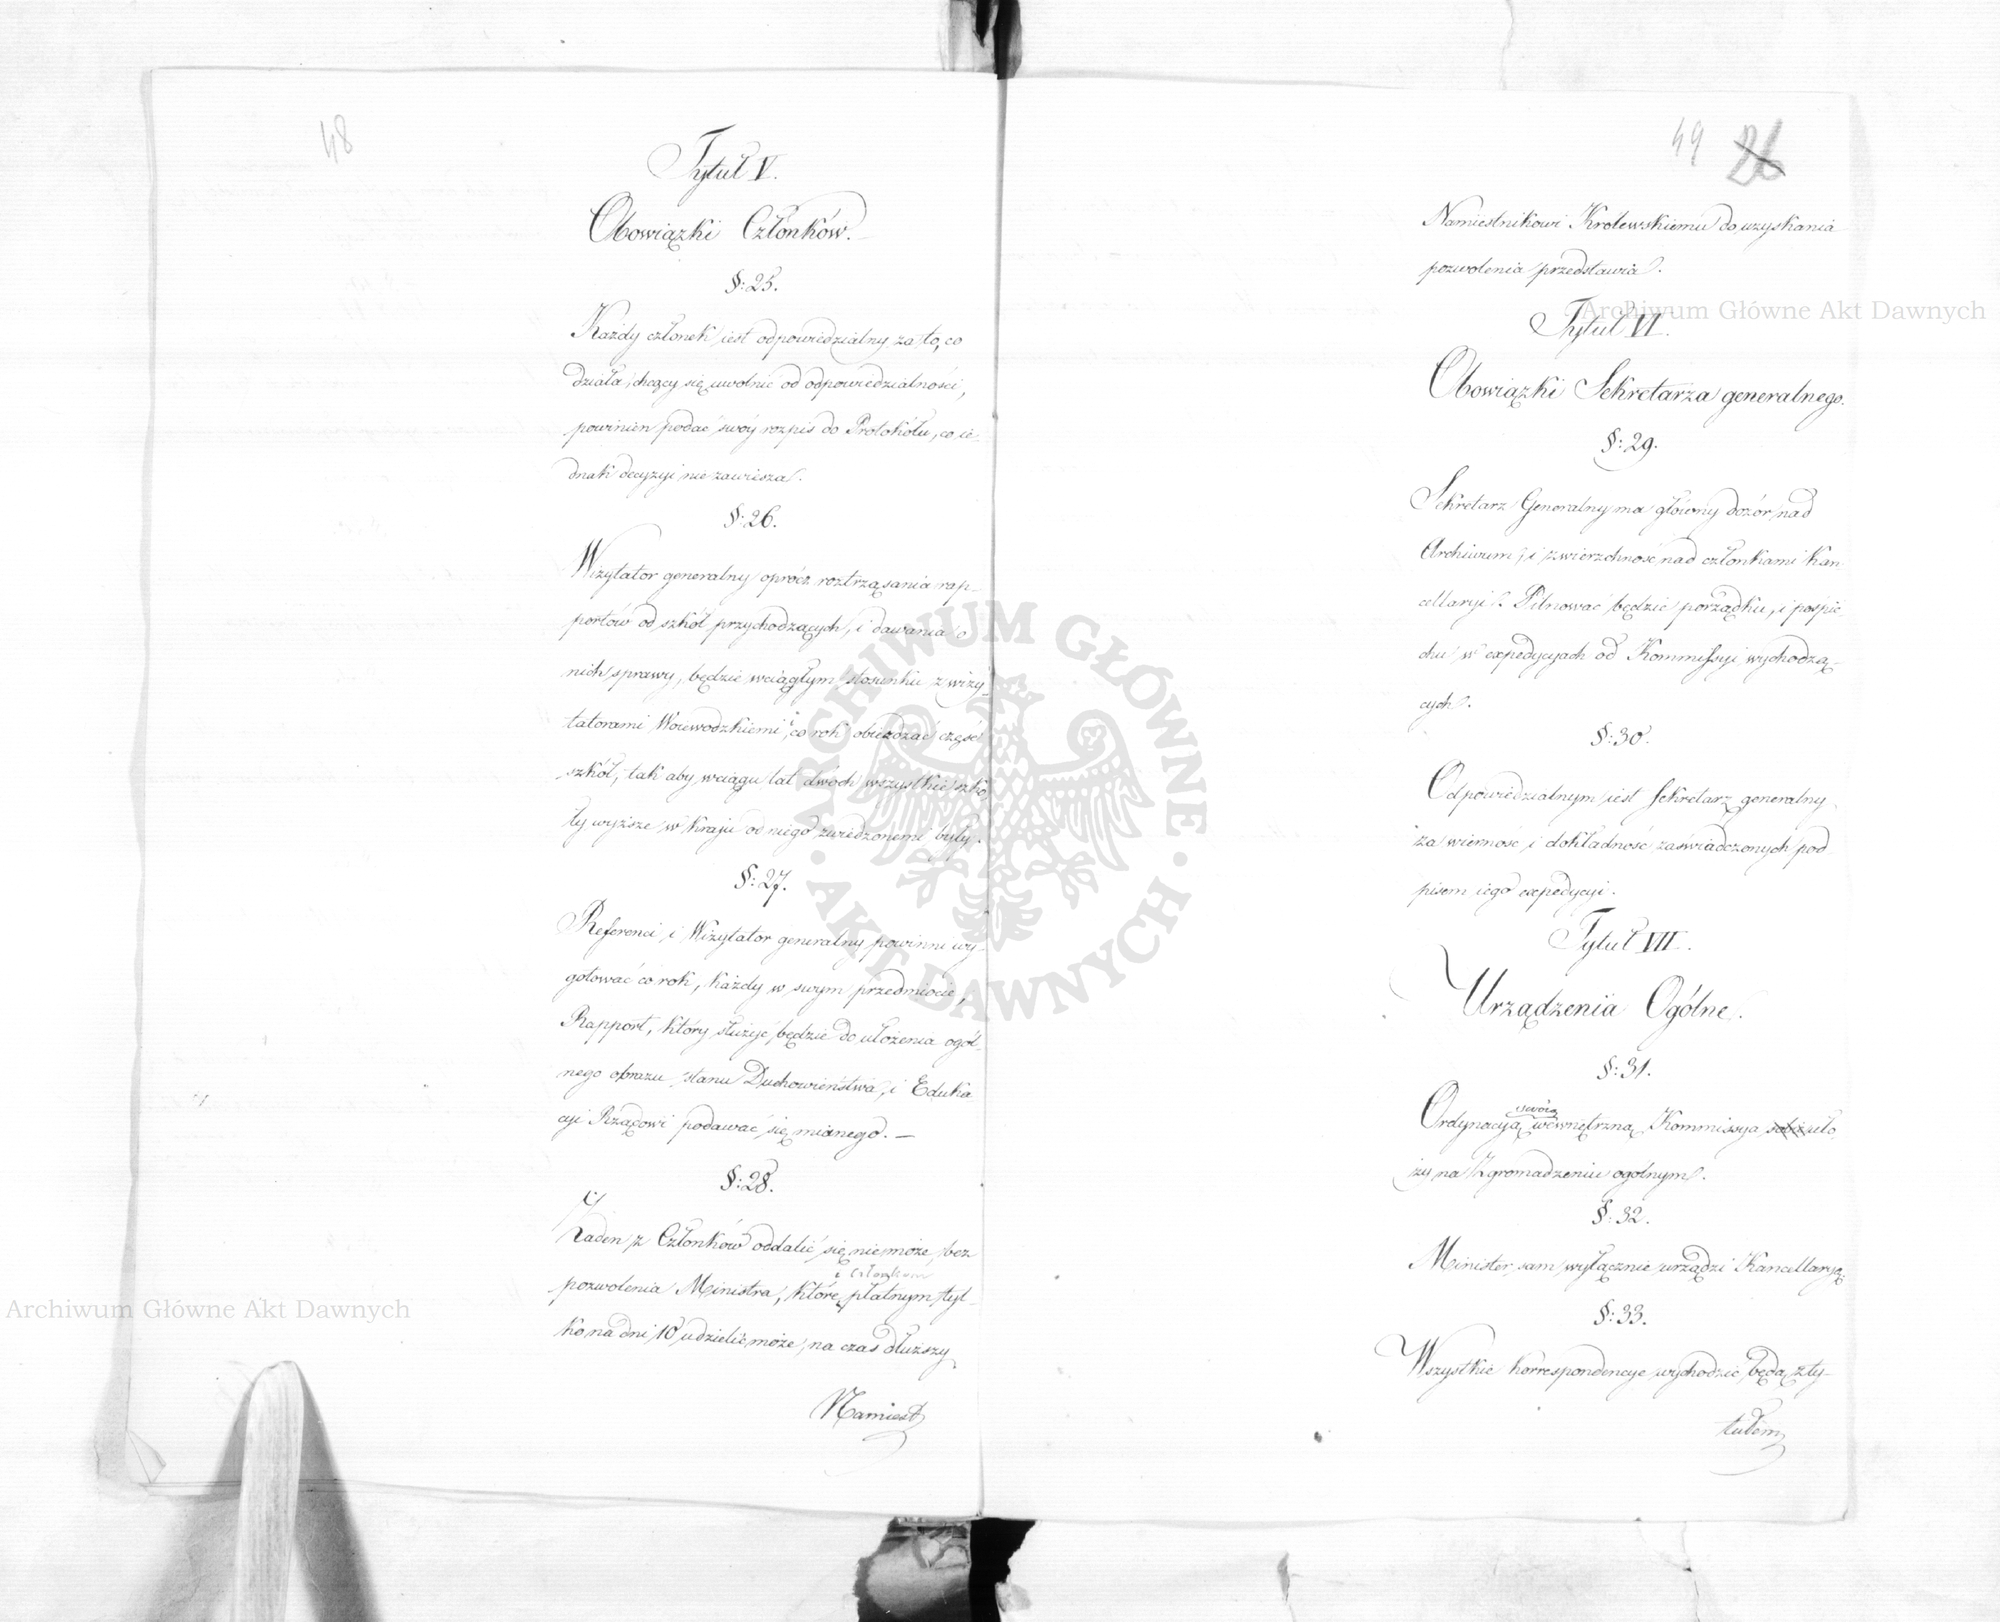 48
Tytuł V.
Obowiązki Członków.
§: 25.
Każdy członek iest odpowiedzialny za to, co
działa, chcący się uwolnić od odpowiedzialności,
powinien podać swóy rozpis do Protokółu, co ie-
dnak decyzyi nie zawiesza.
§: 26.
Wizytator generalny oprócz roztrząsania rap-
portów od szkół przychodzących, i dawania o
nich sprawy, będzie wciągłym stosunku z wizy-
tatorami Woiewodzkiemi, i co rok obieżdżać część
szkół, tak aby wciągu lat dwóch wszystkie szko-
ły wyższe w kraju od niego zwiedzonemi były.
§: 27.
Referenci i Wizytator generalny powinni wy-
gotować co rok, każdy w swym przedmiocie,
Rapport, który służyć będzie do ułożenia ogól-
nego obrazu stanu Duchowieństwa, i Eduka
cyi Rządowi podawać się mianego. —
§: 28.
Żaden z Członków oddalić się nie może, bez
i Członkom
pozwolenia Ministra, które płatnym tyl-
ko na dni 10 udzielić może, na czas dłuższy
Namiest
49 26
Namiestnikowi Królewskiemu do uzyskania
pozwolenia przedstawia.
Tytuł VI.
Obowiązki Sekretarza generalnego.
§: 29.
Sekretarz Generalny ma główny dozór nad
Archiwum, i zwierzchność nad członkami Kan-
cellaryi. Pilnować będzie porządku, i pośpie-
chu w expedycyach od Kommissyi wychodzą-
cych.
§: 30.
Odpowiedzialnym iest Sekretarz generalny
za wierność i dokładność zaświadczonych pod
pisem iego expedycyi.
Tytuł VII.
Urządzenia Ogólne.
§: 31.
swoią
Ordynacyą wewnętrzną Kommissya sobie uło-
ży na Zgromadzeniu ogólnym.
§: 32.
Minister sam wyłącznie urządzi Kancellaryą.
§: 33.
Wszystkie korrespondencye wychodzić będą z ty-
tułem
Archiwum Główne Akt Dawnych
Archiwum Główne Akt Dawnych
ARCHIWUM GŁÓWNE
AKT DAWNYCH